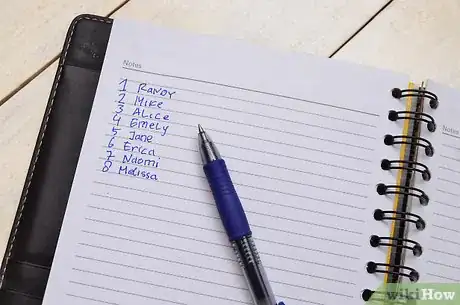 Notes
1 RANDY
2 MIKE
3 ALICE
4 EMELY
5 Jane
6 Erica
7 Naomi
8 Melissa
Notes
wikiHow